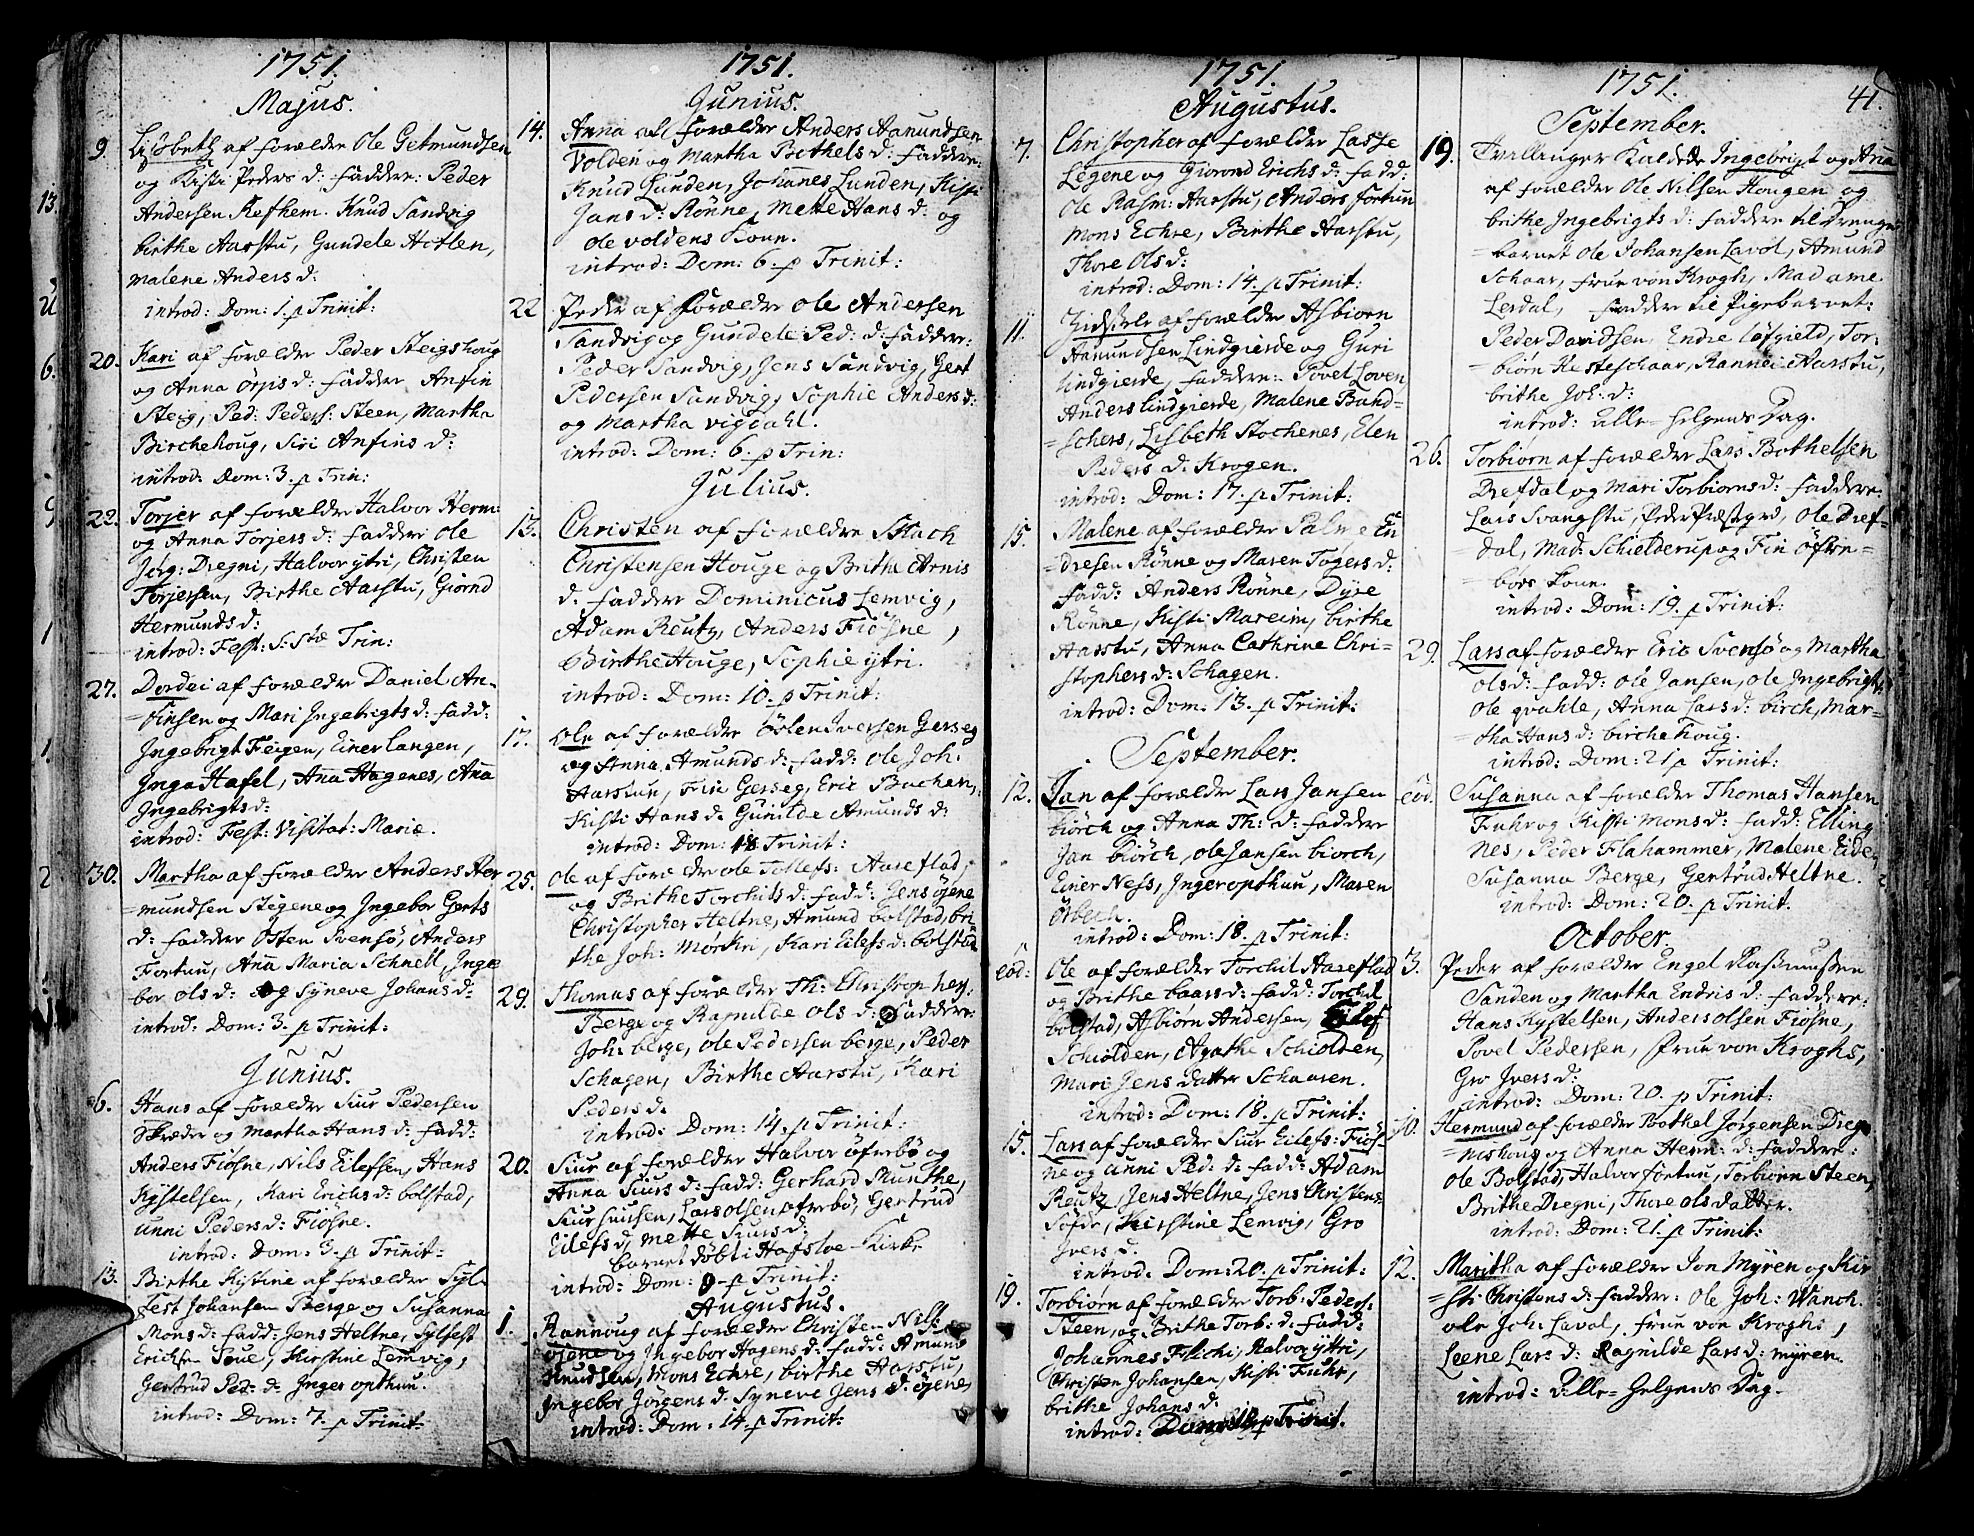 1751.
Majus.
9. Lisbeth af forældre Ole Getmundsen
og Kisti Peders d: faddere: Peder
Andersen Refhem. Knud Sandvig
birthe Aarstu, Gundele
Malene Anders d:
introd: Dom: 1. p Trinit:
20. Kari af forældre Peder Steigshoug
og Anna d: faddere Anfin
Steig, Ped: Peders: Steen, Martha
Birchehoug, Siri Anfins d:
introd: Dom: 3. p Trin:
22. Torjer af forældre Halvor Herm:
og Anna Torjers d: faddere Ole
Jørg: Dregni, Halvor ytri, Christen
Torjersen, Birthe Aarstu, Giørnd
Hermunds d:
introd: Fest: S: Trin:
27. Dordei af forældre Daniel An-
=finsen og Mari Ingebrigts d: fadd:
Ingebrigt Feigen, Einer Langen,
Inga Hafel, Aña Hagenes, Aña
Ingebrigts d:
introd: Fest: Visitat: Mariæ.
30. Martha af forældre Anders Her
=mundsen Stegene og Ingebor Gerts
d: faddere Osten Svensø, Anders
Fortun, Aña Maria Schnell, Inge
bor ols d: og Syneve Johans d:
introd: Dom: 3. p Trinit:
Junius.
6. Hans af forældre Siur Pedersen
Skræder og Martha Hans d: fadd:
Anders Fiøsne, Nils Eilefsen, Hans
Kystelsen, Kari Erichs d: bolstad,
unni Peders d: Fiøsne.
introd: Dom: 3. p Trinit:
13. Birthe Kistine af forældre Syl-
fest Johansen Berge og Susanna
Mons d: fadd: Jens Heltne, Sylfest
Erichsen Soue, Kirstine Lemvig,
Gertrud Ped: d: Inger opthun.
introd: Dom: 7. p Trinit:
1751.
Junius.
14. Anna af forældre Anders Aamundsen
Volden og Martha Bothels d: faddere:
Knud Lunden, Johañes Lunden, Kisti
Jans d: Rønne, Mette Hans d: og
ole voldens Kone.
introd: Dom: 6. p Trinit:
22 Peder af forældre ole Andersen
Sandvig og Gundele Ped: d: faddere:
Peder Sandvig, Jens Sandvig, Gert
Pedersen Sandvig, Sophie Anders d:
og Martha vigdahl.
introd: Dom: 6. p Trin:
Julius.
13. Christen af forældre
Christensen Houge og Brithe Arnis
d. faddere Dominicus Lemvig,
Adam Reutz, Anders Fiøsne,
Birthe Houge, Sophie ytri.
introd: Dom: 10. p Trinit:
17. Ole af forældre Gerseg
og Anna Amunds d: fadd: ole Joh:
Aarstun, Gerseg, Eric Buchen,
Kisti Hans d: Gunilde Amunds d:
introd: Dom: 18 Trinit:
25. Ole af forældre ole Tollefs: Aareflad,
og Brithe Torchils d: fadd: Jens øyene
Christopher Heltne, Amund bolstad, bri
the Joh: Mørkri, Kari Eilefs d: bolstad
29. Thomas af forældre Th: Christophers.
Berge og Ragnilde ols d: faddere:
Joh: berge, ole Pedersen berge, Peder
Schagen, Birthe Aarstu, Kari
Peders d.
introd: Dom: 14. p Trinit:
20. Siur af forældre Halvor øfrebø og
Anna Siurs d: fadd: Gerhard Munthe,
Siur Lars olsen øfrebø, Gertrud
Eilefs d. Mette Siurs d.
barnet døbt i Hafsloe Kirke
introd: Dom: 9. p Trinit:
Augustus.
1. Rannoug af forældre Christen Nils:
øjene og Ingebor Hagens d: fadd: Amund
Knudsen, Mons Echre, birthe Aarstu,
Ingebor Jørgens d: Syneve Jens d. øjene
introd: Dom: 14. p Trinit:
1751.
Augustus.
7. Christopher af forældre Lasse
Legene og Giørond Erichs d: fadd:
Ole Rasm: Aarstu, Anders Fortun
Mons Echre, Birthe Aarstu,
Thore Ols d:
introd: Dom: 14. p Trinit:
11. af forældre Asbiørn
Aamundsen Lindgierde og Guri
Lindgierde, faddere: Povel Loven
Anders Lindgierde, Malene Band=
=schers, Lisbeth Stochenes, Elen
Peders d. Krogen.
introd: Dom: 17. p Trinit:
15. Malene af forældre Palme En
=dresen Rønne og Maren Togers d:
fadd: Anders Rønne, Dyre
Rønne, Kisti Mareim, birthe
Aarstu, Anna Cathrine Chri=
stophers d: Schagen.
introd: Dom: 13. p Trinit:
September.
12. Jan af forældre Lars Jansen
biørch og Anna Th: d: faddere
Jan biørch, ole Jansen biørch,
Einer Ness, Inger opthun, Maren
Ørbech.
introd: Dom: 18. p Trinit:
eod: Ole af forældre Torchil Aareflad
og Brithe Laars d: fadd: Torchil
bolstad, Asbiørn Andersen, Eilef
Schiolden, Agathe Schiolden,
Mari Jens datter Schaaren.
introd: Dom: 18. p Trinit:
15. Lars af forældre Siur Eilefs: Fiøs-
ne og unni Ped: d: fadd: Adam
Reutz, Jens Heltne, Jens Christens:
Søfde, Kirstine Lemvig, Gro
Jvers d.
introd: Dom: 20. p Trinit:
19. Torbiørn af forældre Torb: Peders:
Steen, og Brithe Torb: d: fadd:
Johannes Flichi, Halvor yttri,
Christen Johansen, Kisti Fuhr,
brithe Johans d:
introd: Trinit.
41.
1751.
September.
19. Tvillinger Kaldede Ingebrigt og Aña
af forældre Ole Nilsen Hougen og
brithe Ingebrigts d: faddere til Drenge
=barnet Ole Johansen Lavol, Amund
Schaar, frue von Krogh, Madame
Lerdal, faddere til Pigebarnet:
Peder Davidsen, Endre Løfgield, Tor:
=biørn Kesteschaar, Rannei Aarstu,
brithe Joh: d:
introd: Alle=Helgens Dag.
26. Torbiørn af forældre Lars Bothelsen
Drefdal og Mari Torbiørns d: faddere:
Lars Svangstu, Peder Præstgrd, Ole Dref=
=dal, Mad: Schielderup og Fin øfren=
=bøes Kone.
introd: Dom: 19. p Trinit:
29. Lars af forældre Eric Svensø og Martha
ols d: fadd: ole Jansen, ole Ingebrigts,
ole qvahle, Anna Lars d: birch, Mar=
=tha Hans d: birchehoug.
introd: Dom: 21. p Trinit:
eod. Susanna af forældre Thomas Hansen
Fuhr og Kisti Mons d: fadd: Elling
Nes, Peder Flahammer, Malene Eide,
Susanna Berge, Gertrud Heltne.
introd: Dom: 20. p Trinit.
October.
3. Peder af forældre Engel Rasmussen
Sanden og Martha Endris d: faddere:
Hans Kystelsen, Anders olsen Fiøsne,
Povel Pedersen, Frue von Kroghs,
Gro Jvers d:
introd: Dom: 20. p Trinit:
10. Hermund af forældre Bothel Jørgensen Dreg
=nishoug og Anna Herm: d: faddere:
ole Bolstad, Halvor Fortun, Torbiørn Steen,
Brithe Dregni, Thore ols datter.
introd: Dom: 21. p Trinit:
12. Maritha af forældre Jon Myren og Kir
=sti Christens d: faddere: Ole Joh: Wanch.
ole Joh: Laval, frue von Kroghs,
Leene Lars d: Ragnilde Lars d: myren.
introd: Alle=Helgens Dag.